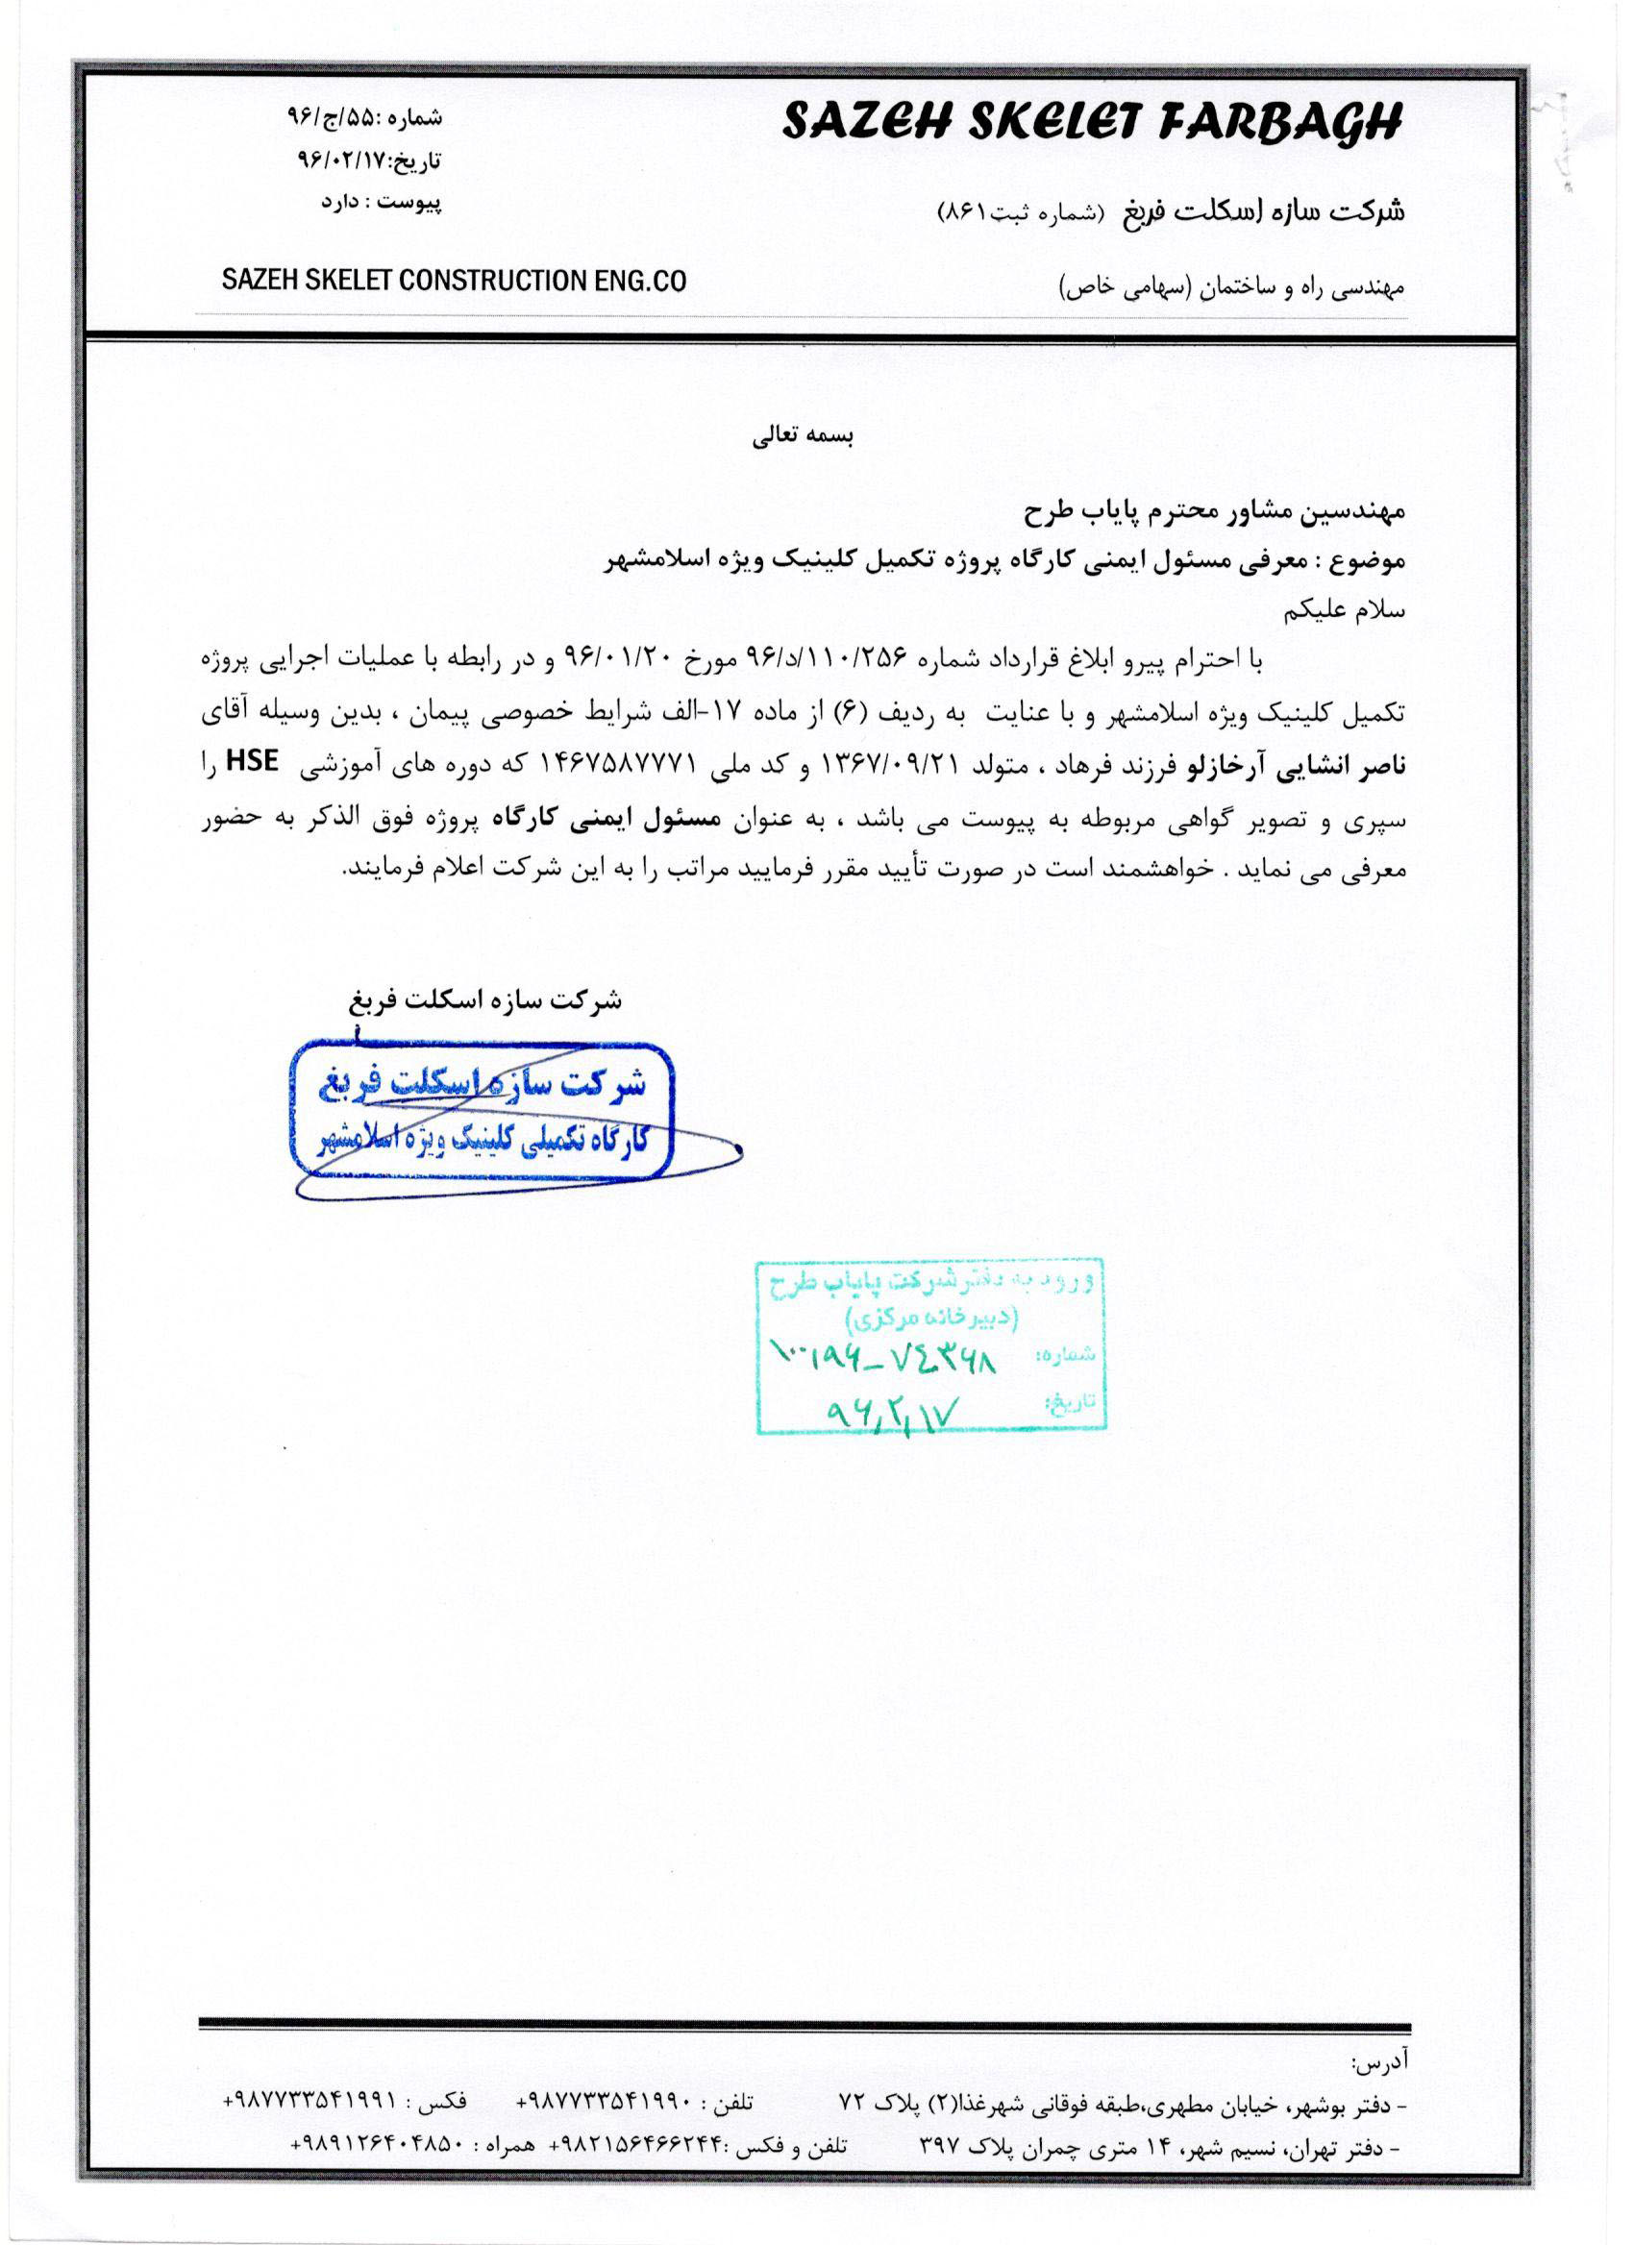 SAZEH SKELET FARBAGH
شماره :۵۵/ج/۹۶
تاریخ:۹۶/۰۲/۱۷
پیوست : دارد
شرکت سازه اسکلت فربغ (شماره ثبت۸۶۱)
مهندسی راه و ساختمان (سهامی خاص)
SAZEH SKELET CONSTRUCTION ENG.CO
بسمه تعالی
مهندسین مشاور محترم پایاب طرح
موضوع : معرفی مسئول ایمنی کارگاه پروژه تکمیل کلینیک ویژه اسلامشهر
سلام علیکم
با احترام پیرو ابلاغ قرارداد شماره ۹۶/د/۱۱۰/۲۵۶ مورخ ۹۶/۰۱/۲۰ و در رابطه با عملیات اجرایی پروژه
تکمیل کلینیک ویژه اسلامشهر و با عنایت به ردیف (۶) از ماده ۱۷-الف شرایط خصوصی پیمان ، بدین وسیله آقای
ناصر انشایی آرخازلو فرزند فرهاد ، متولد ۱۳۶۷/۰۹/۲۱ و کد ملی ۱۴۶۷۵۸۷۷۷۱ که دوره های آموزشی HSE را
سپری و تصویر گواهی مربوطه به پیوست می باشد ، به عنوان مسئول ایمنی کارگاه پروژه فوق الذکر به حضور
معرفی می نماید . خواهشمند است در صورت تأیید مقرر فرمایید مراتب را به این شرکت اعلام فرمایند.
شرکت سازه اسکلت فربغ
شرکت سازه اسکلت فربغ
کارگاه تکمیلی کلینیک ویژه اسلامشهر
ورود به دفتر شرکت پایاب طرح
(دبیرخانه مرکزی)
شماره: ۱۰۰۱۹۶-۷۴۳۶۸
تاریخ: ۹۶,۲,۱۷
آدرس:
- دفتر بوشهر، خیابان مطهری،طبقه فوقانی شهرغذا(۲) پلاک ۷۲ تلفن : ۹۸۷۷۳۳۵۴۱۹۹۰+ فکس : ۹۸۷۷۳۳۵۴۱۹۹۱+
- دفتر تهران، نسیم شهر، ۱۴ متری چمران پلاک ۳۹۷ تلفن و فکس :۹۸۲۱۵۶۴۶۶۲۴۴+ همراه : ۹۸۹۱۲۶۴۰۴۸۵۰+